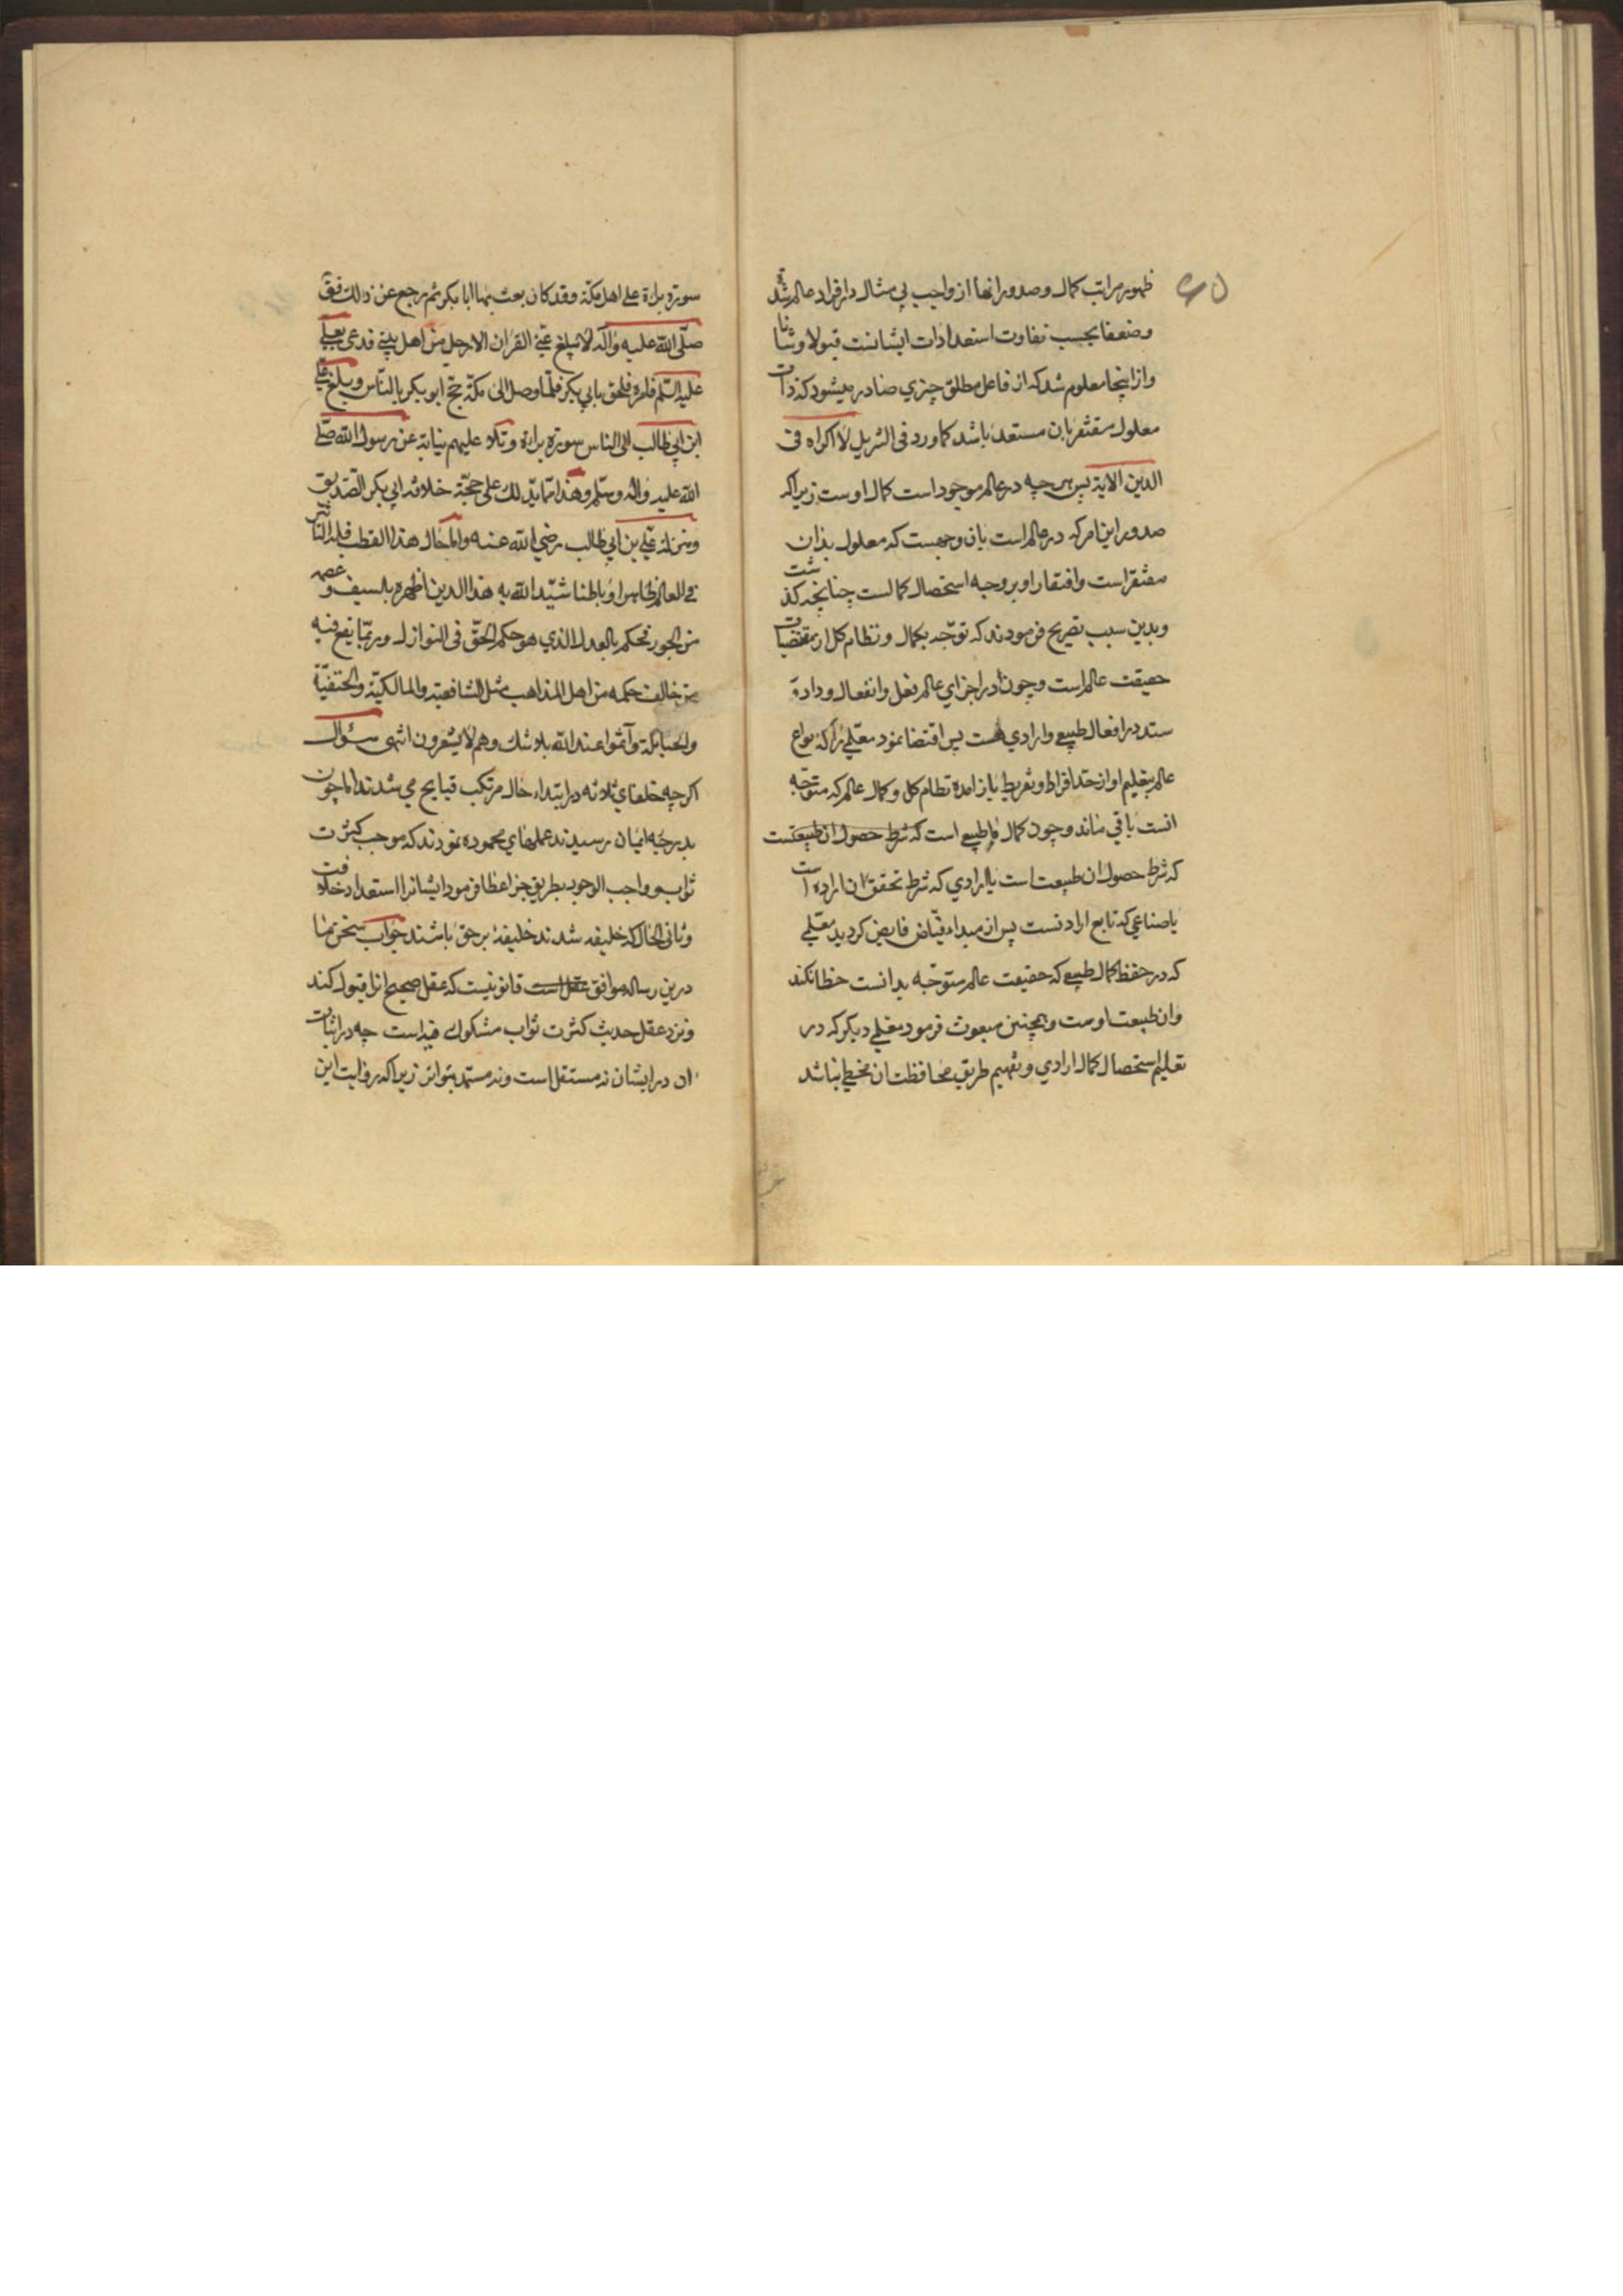 ظهور مراتب کمال و صدور انها از واجب بی مثال در افراد عالم شدة
و ضعفا بحسب تفاوت استعدادات ایشانست قبولا و شانا
و از اینجا معلوم شد که از فاعل مطلق چیزی صادر میشود که ذات
معلول مفتقر بان مستعد باشد کما ورد فی التنزیل لا اکراه فی
الدین الایة پس هر چه در عالم موجود است کمال اوست زیرا که
صدور این امر که در عالم است بان وجهست که معلول بذات
مفتقر است و افتقار او بر وجه استحصال کمالست چنانچه گذشت
و بدین سبب تصریح فرمودند که توجّه بکمال و نظام کل از مقتضیات
حقیقت عالم است و چون در اجزای عالم فعل و انفعال و داد و
ستد در افعال طبیعی و ارادی هست پس اقتضا نمود معلّمی را که انواع
عالم بتعلیم او از حد افراط و تفریط باز امده نظام کل و کمال عالم که متوجّه
انست باقی ماند و چون کمال یا طبیعی است که شرط حصول ان طبیعتست
که شرط حصول ان طبیعت است یا ارادی که شرط تحقق ان اراده است
یا صناعی که تابع ارادتست پس از مبداء فیّاض فایض کردید معلّمی
که در حفظ کمال طبیعی که حقیقت عالم متوجّه بدانست خطا نکند
و ان طبیعت اوست و همچنین مبعوث فرمود معلمی دیکر که در
تعلیم استحصال کمال ارادی و تفهیم طریق محافظت ان مخطی نباشد
سورة براءة علی اهل مکّة و قد کان بعث بها ابا بکر ثم رجع عن ذلک فقال
صلّی الله علیه و آله لا یبلغ عنّی القران الا رجل من اهل بیتی فدعی بعلی
علیه السّلم فامره فلحق بابی بکر فلمّا وصل الی مکّة حجّ ابو بکر بالنّاس و بلغ علی
ابن ابی طالب الی الناس سورة براءة و تلا علیهم نیابة عن رسول الله صلّی
الله علیه و اله و سلّم و هذا ممّا یدلک علی حجّة خلافة ابی بکر الصّدیق
و منزلة علی بن ابی طالب رضی الله عنه و اما حال هذا القطب فله التأثیر
فی العالم ظاهرا و باطنا شیّد الله به هذا الدین اظهره بالسیف و عصمه
من الجور فحکم بالعدل الذی هو حکم الحقّ فی النوازل و ربّما یقع فیه
من خالف حکمه من اهل المذاهب مثل الشافعیّة و المالکیّة و الحنفیّة
و الحنابلة و آثموا عند الله بلا شک و هم لا یشعرون انتهی سؤال
اکرچه خلفای ثلاثه در ابتداء حال مرتکب قبایح می شدند اما چون
بدرجه ایمان رسیدند عملهای محموده نمودند که موجب کثرت
ثواب و واجب الوجود بطریق جزا عطا فرمود ایشانرا استعداد خلافت
و ثانی الحال که خلیفه شدند خلیفۀ برحق باشند جواب سخن ما
درین رساله موافق عقل است قانونیست که عقل صحیح انرا قبول کند
و نزد عقل حدیث کثرت ثواب مشکوک فیه است چه در اثبات
ان در ایشان نه مستقل است و نه مستمد بتواتر زیرا که روایت این